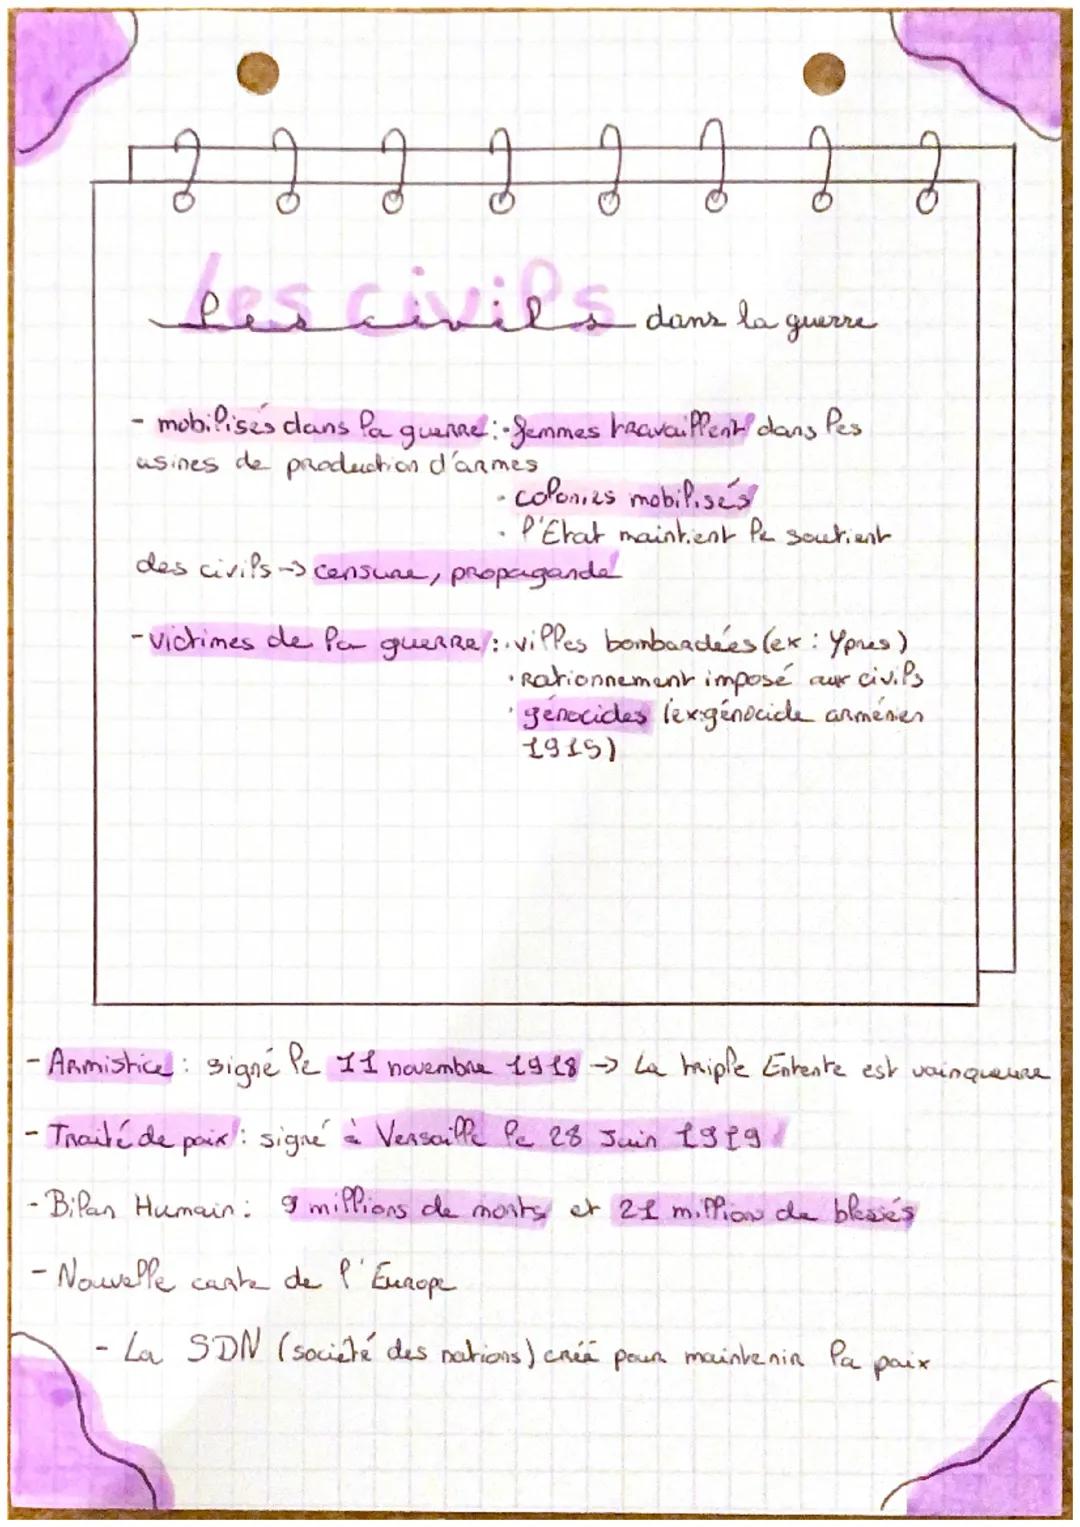 Les civils
les civils dans la guerre
- mobilisés dans la guerre : · femmes travaillent dans les
usines de production d'armes
· colonies mobilisés
· l'Etat maintient le soutient
des civils → censure, propagande
- victimes de la guerre : · villes bombardées (ex : Ypres)
· rationnement imposé aux civils
· génocides (ex: génocide arménien
1915)
- Armistice : signé le 11 novembre 1918 → La triple Entente est vainqueure
- Traité de paix : signé à Versaille le 28 Juin 1919
- Bilan Humain : 9 millions de morts et 21 million de blessés
- Nouvelle carte de l'Europe
- La SDN (société des nations) créé pour maintenir la paix